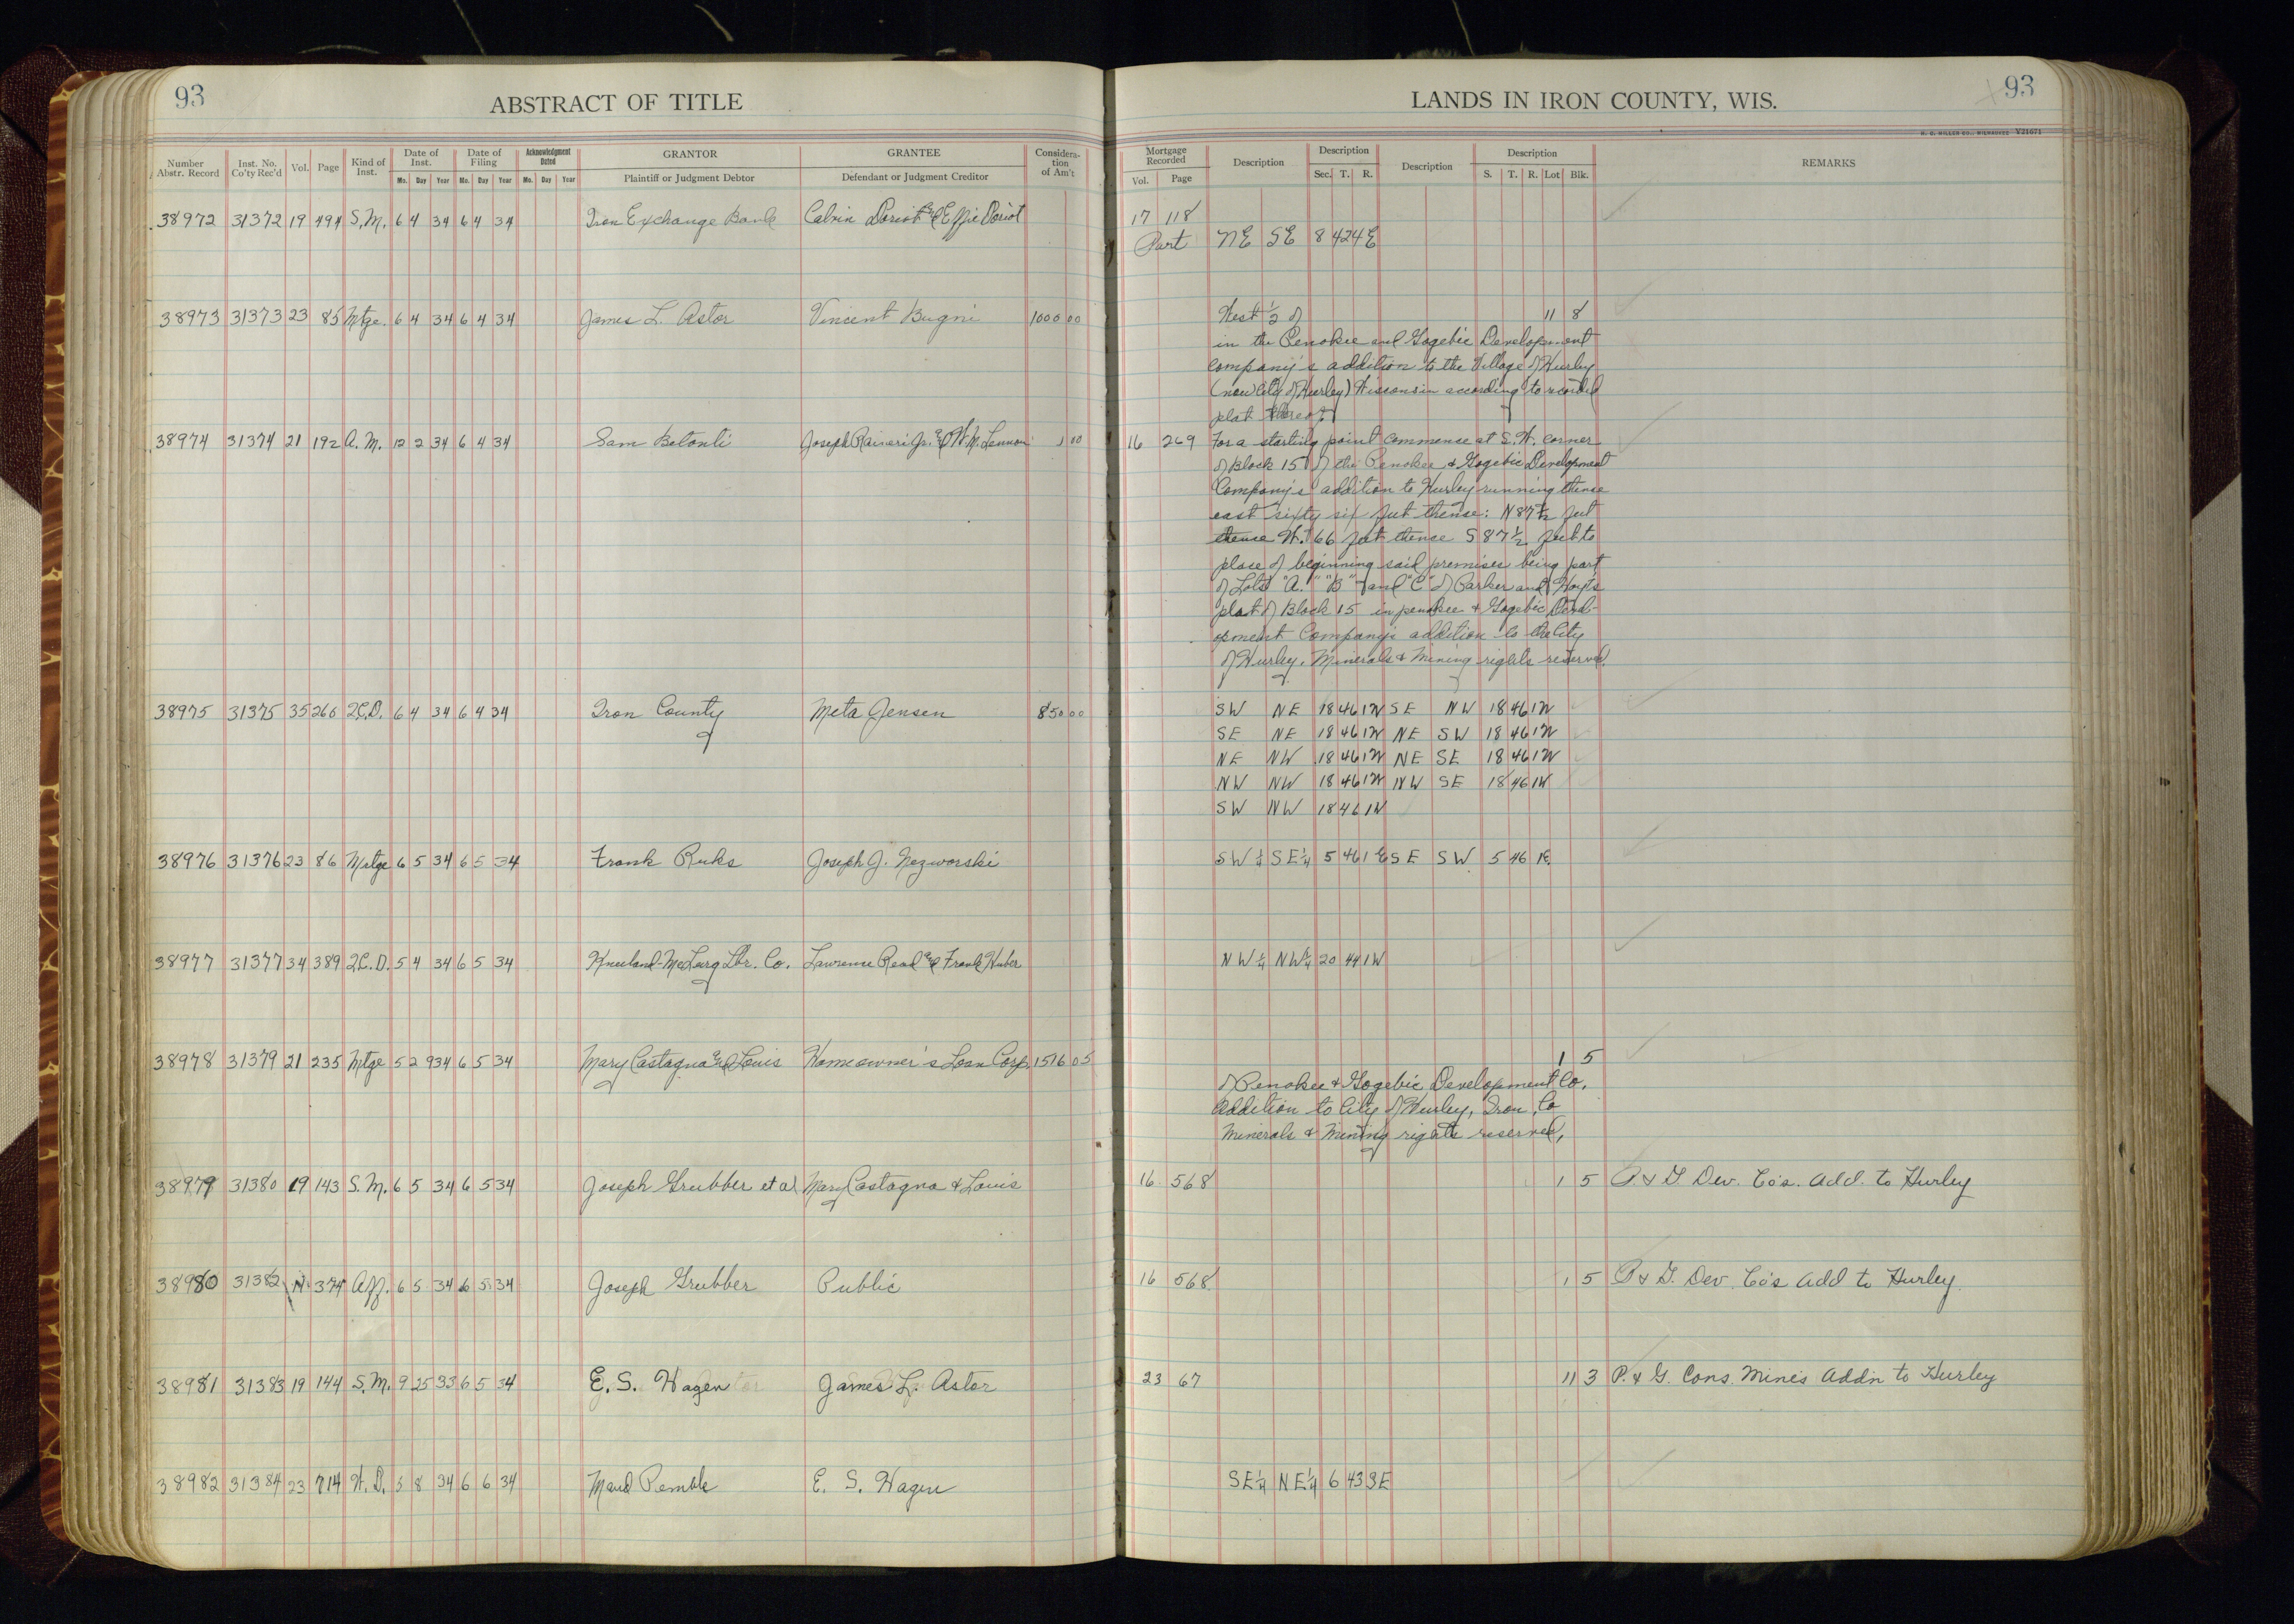 93
ABSTRACT OF TITLE
Number Abstr. Record Inst. No. Co'ty Rec'd Vol. Page Kind of Inst. Date of Inst. Mo. Day Year Date of Filing Mo. Day Year Acknowledgment Dated Mo. Day Year GRANTOR Plaintiff or Judgment Debtor GRANTEE Defendant or Judgment Creditor Considera-tion of Am't
38972 31372 19 494 S.M. 6 4 34 6 4 34 Iron Exchange Bank Calvin Doriot & Effie Doriot
38973 31373 23 85 Mtge. 6 4 34 6 4 34 James L. Astor Vincent Bugni 1000 00
38974 31374 21 192 A.M. 12 2 34 6 4 34 Sam Betonti Joseph Raineri Jr. & W.M. Lennon 1 00
38975 31375 35 260 2C.D. 6 4 34 6 4 34 Iron County Meta Jensen 850 00
38976 31376 23 86 Mtge 6 5 34 6 5 34 Frank Ruks Joseph J. Nezworski
38977 31377 34 389 2C.D. 5 4 34 6 5 34 Kneeland-McLurg Lbr. Co. Lawrence Read & Frank Huber
38978 31379 21 235 Mtge 5 29 34 6 5 34 Mary Castagna & Louis Homeowner's Loan Corp. 1516 05
38979 31380 19 143 S.M. 6 5 34 6 5 34 Joseph Grubber et al Mary Castagna & Louis
38980 31382 374 Aff. 6 5 34 6 5 34 Joseph Grubber Public
38981 31383 19 144 S.M. 9 25 33 6 5 34 E. S. Hagen James L. Astor
38982 31384 23 714 W.D. 5 8 34 6 6 34 Maud Pemble E. S. Hagen
93
LANDS IN IRON COUNTY, WIS.
H. C. MILLER CO., MILWAUKEE V21671
Mortgage Recorded Vol. Page Description Description Sec. T. R. Description Description S. T. R. Lot Blk. REMARKS
17 118
Part NE SE 8 42 4E
West ½ of 11 8
in the Penokee and Gogebic Development
Company's addition to the Village of Hurley
(now City of Hurley) Wisconsin according to recorded
plat thereof
16 269 For a starting point commence at S.W. corner
of Block 15 of the Penokee & Gogebic Development
Company's addition to Hurley running thense
east sixty six feet thense: N 87½ feet
thense W. 66 feet thence S 87½ feet to
place of beginning said premises being part
of Lots "A." "B" and "C" of Parker and Hoyts
plat of Block 15 in penokee & Gogebic Devel-
opment Company's addition to the City
of Hurley. Minerals & Mining rights reserved.
SW NE 18 46 1W SE NW 18 46 1W
SE NE 18 46 1W NE SW 18 46 1W
NE NW 18 46 1W NE SE 18 46 1W
NW NW 18 46 1W NW SE 18 46 1W
SW NW 18 46 1W
SW¼ SE¼ 5 46 1E SE SW 5 46 1E
NW¼ NW¼ 20 44 1W
1 5
of Penokee & Gogebic Development Co.
Addition to City of Hurley, Iron Co
Minerals & Mining rights reserved,
16 568 1 5 P. & G. Dev. Co's. Add. to Hurley
16 568 1 5 P & G. Dev. Co's Add to Hurley.
23 67 11 3 P. & G. Cons. Mines Addn to Hurley
SE¼ NE¼ 6 43 3E